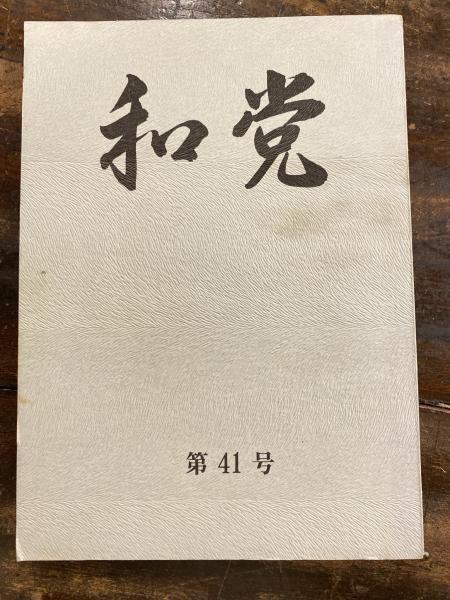 和党
第 41 号